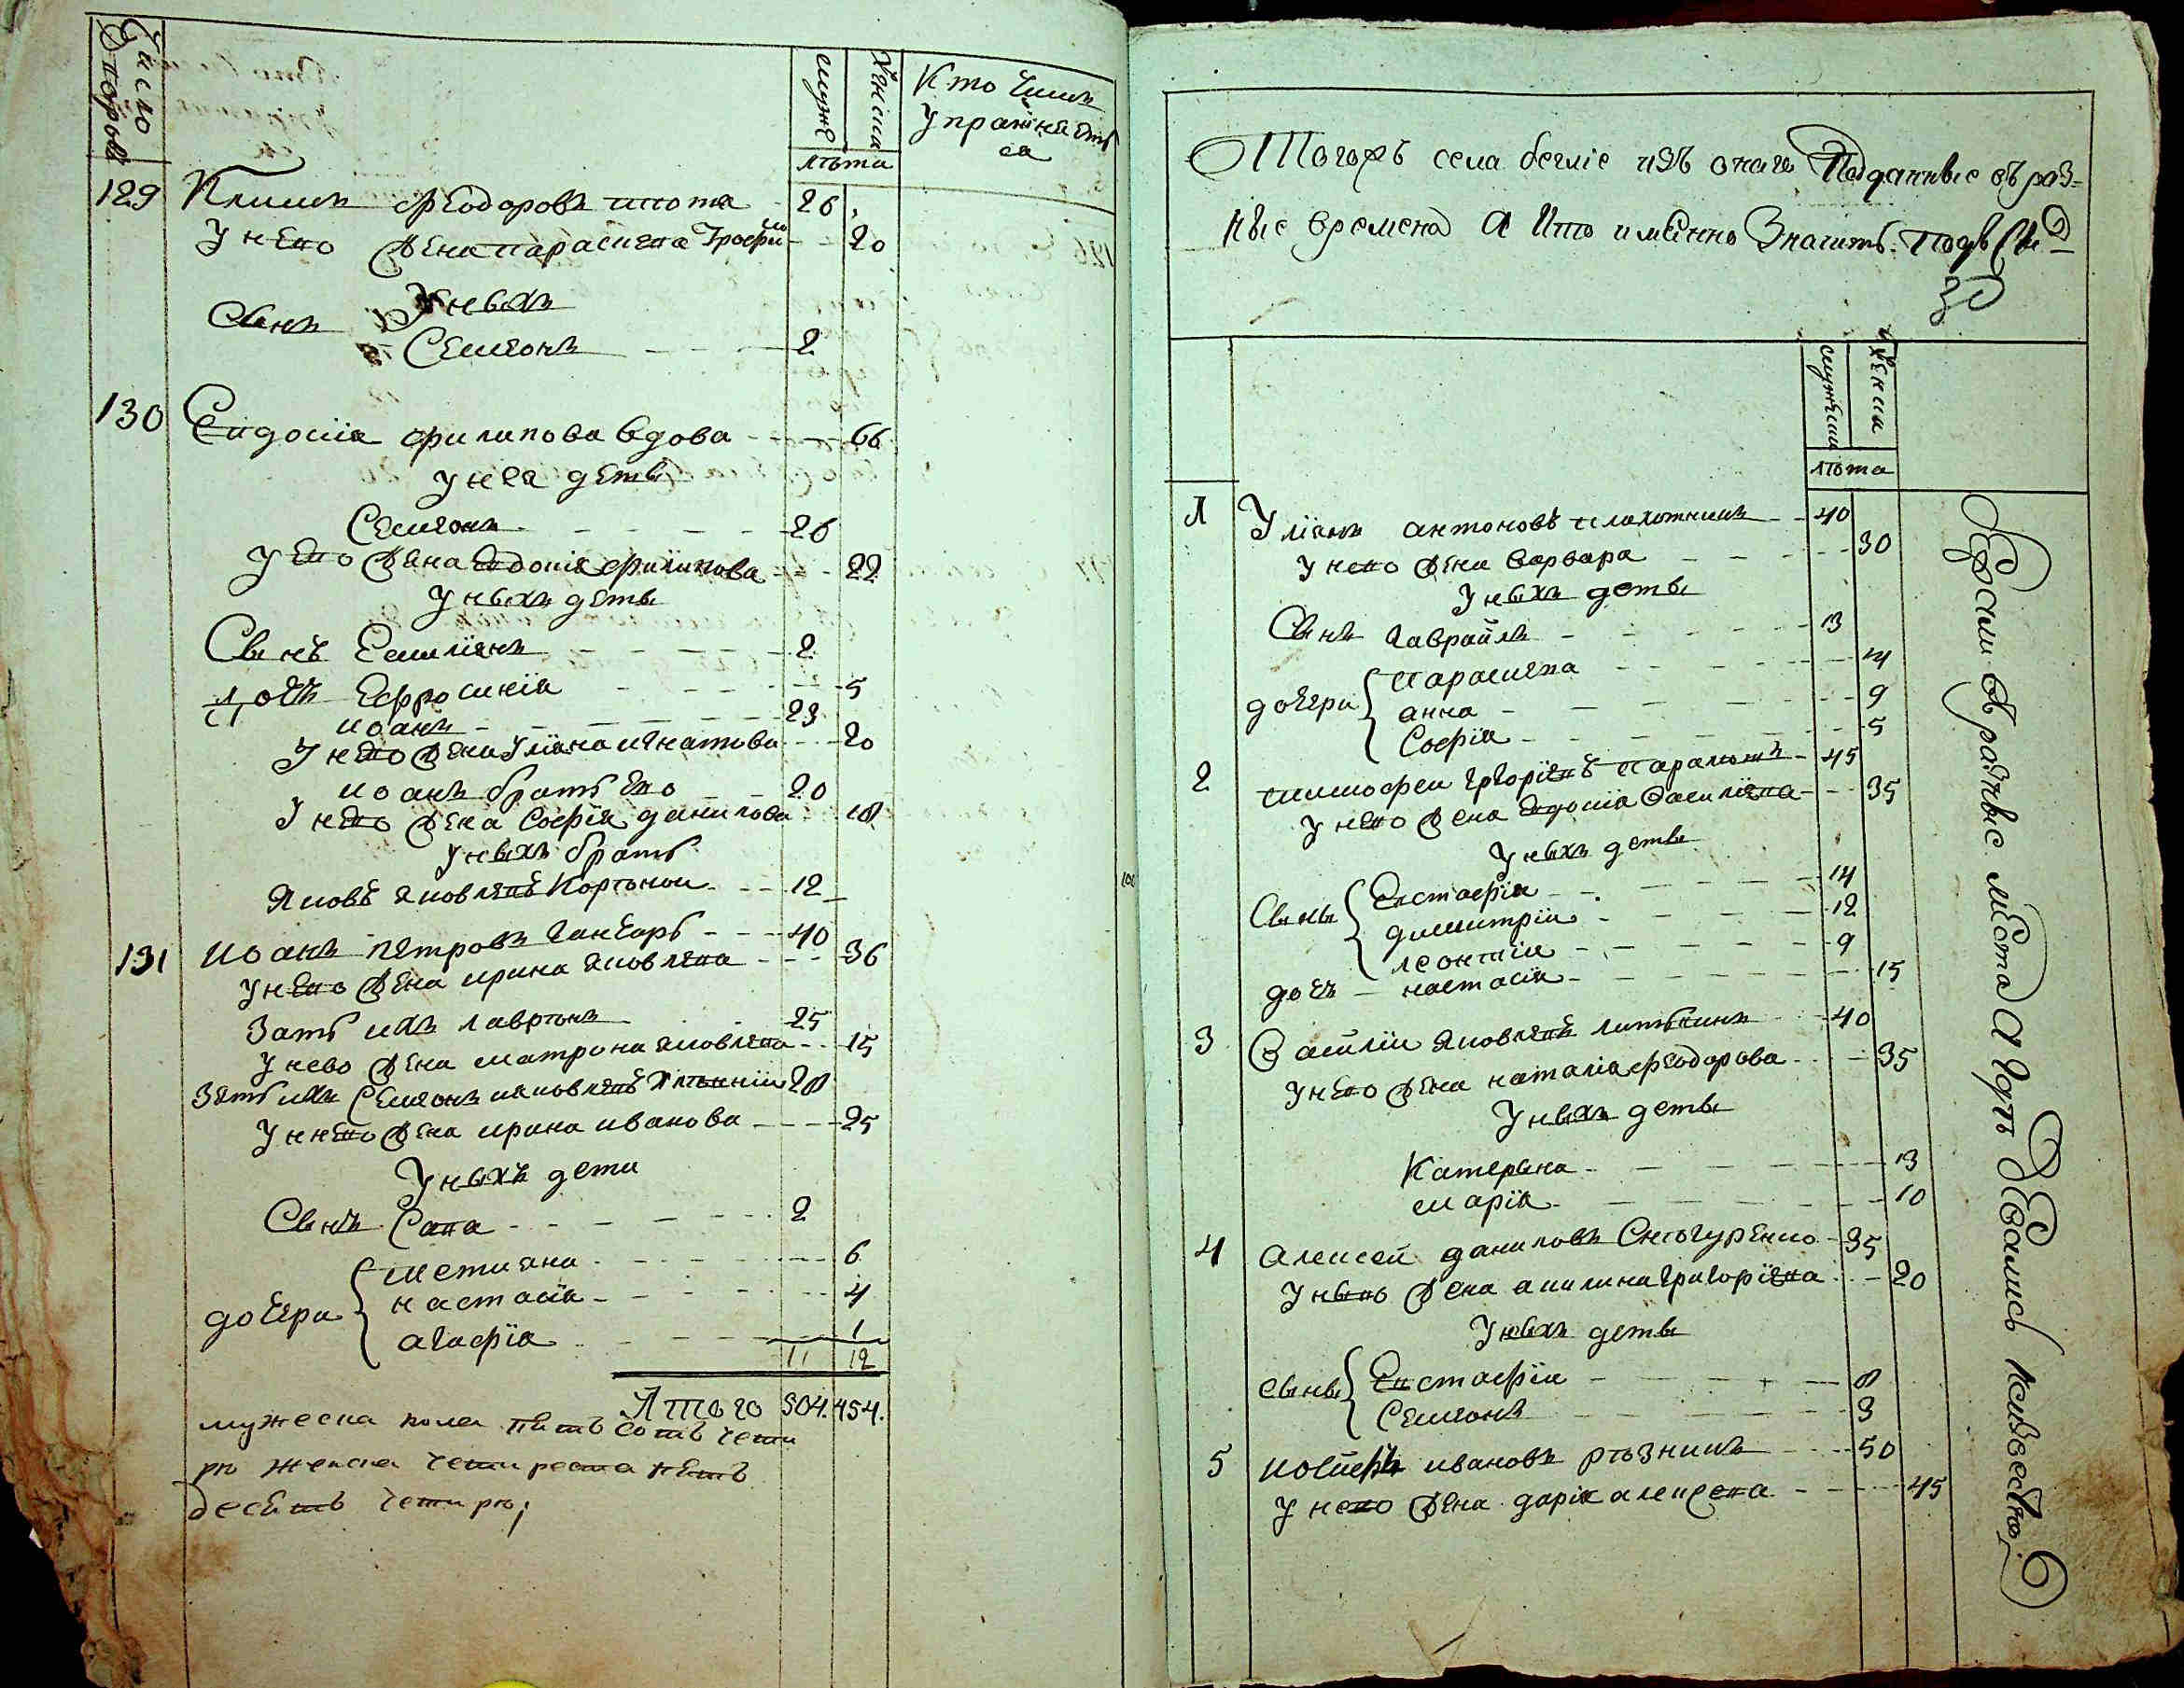 Число дворовъ
мужс
женска
лѣта
Кто чимъ
упражнаетъ
са
129 Климъ феодоровъ шпота 26
У него жена параскева Трофи 20
У ныхъ
Сынъ
Семионъ 2
130 Евдокия филипова вдова 66
у нея деты
Семионъ 26
У его жена Евдокия филипова 22
У ныхъ деты
Сынъ Емилиянъ 2
Дочъ Ефросиния 5
иоанъ 23
У него жена Улияна игнатова 20
иоанъ братъ его 20
У него жена София данилова 18
У ныхъ братъ
Яковъ яковлевъ 12
131 иоанъ петровъ ганчаръ 40
У него жена ирина яковлева 36
Зать ихъ лавринъ 25
У нево жена матрона яковлева 15
Зять ихъ Семионъ иаковлевъ 28
У него жена ирина иванова 25
У ныхъ дети
Сынъ Сава 2
дочери
тетияна 6
настасия 4
агафїя 1
11 12
Итого 504. 454.
мужеска пола пять сотъ чети
рѣ женска четириста пять
десятъ четирѣ;
Тогожъ села беглїе изъ онаго Подданные въ раз-
ные времена а кто именно Значитъ подъ сим
мужеска
женска
лѣта
1 Улиянъ антоновъ плахотникъ 40
У него жена варвара 30
У ныхъ деты
Сынъ гавраилъ 13
дочери
параскева 14
анна 9
София 5
2 тимофеи григориевъ 45
у него жена евдокия Василиева 35
У ныхъ деты
Сыны
Евстафiи 14
димитрiи 12
леонтiи 9
дочъ настасия 15
3 Василiи яковлевъ литвинъ 40
У него жена наталия феодорова 35
У ныхъ деты
Катерына 13
мария 10
4 Алексей даниловъ Снѣгуренко 35
У него жена акилина григорiева 20
У ныхъ деты
сыны
Евстафiи 8
Семионъ 3
5 иосифъ ивановъ рѣзникъ 50
У него жена дария алексева 45
Бежали въ разные места а где девались неизвестно